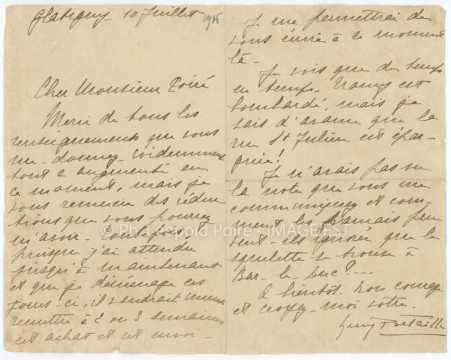 Glatigny 10 Juillet 1916
Cher Monsieur Poiré
Merci de tous les
renseignements que vous
me donnez. Evidemment
tout a augmenté en
ce moment, mais je
vous remercie des réduc
tions que vous pourrez
m'avoir. Toutefois,
puisque j'ai attendu
jusqu'à maintenant
et que je déménage ces
jours-ci, il vaudrait mieux
remettre à 2 ou 3 semaines
cet achat et cet envoi.
Je me permettrai de
vous écrire à ce moment
là.
Je vois que de temps
en temps Nancy est
bombardé, mais je
vois d'avance que la
rue St Julien est épar
gnée!
Je n'avais pas vu
la note que vous me
communiquez et com
ment les
sent-ils que la
squelette se trouve à
Bar-le-Duc?...
A bientôt. Bon courage
et croyez-moi vôtre.
© Photo Leopold Poiré / IMAGEST